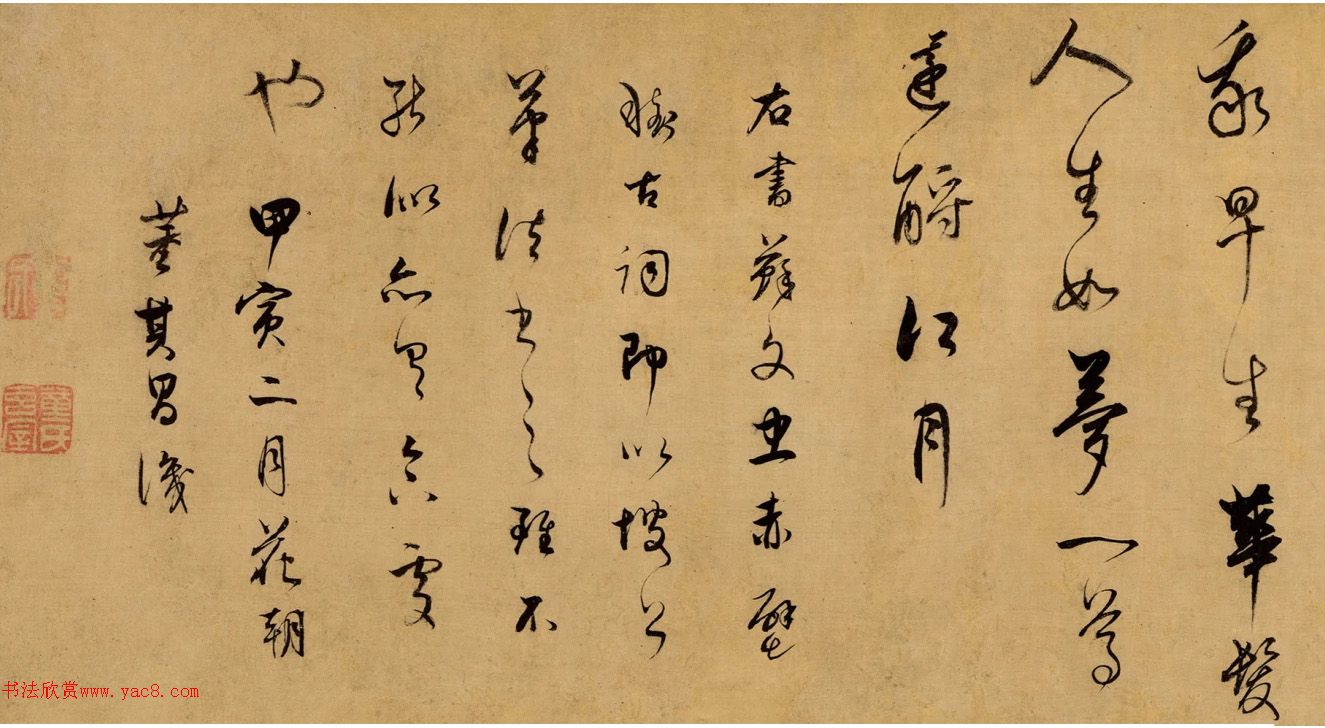 我早生華髮
人生如夢一尊
還酹江月
右書蘇文忠赤壁
懷古詞即以坡公
筆法書之雖不
能似亦合處
也甲寅二月花朝
董其昌識
书法欣赏www.yac8.com